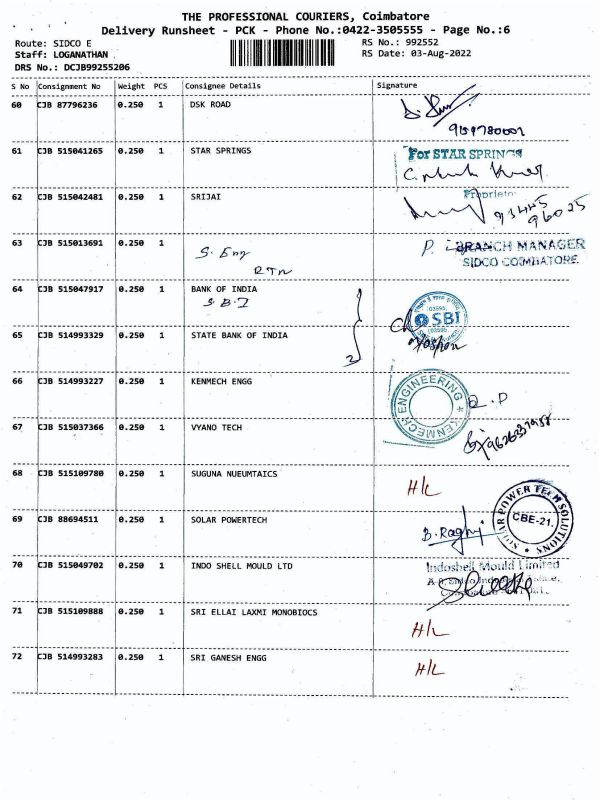 THE PROFESSIONAL COURIERS, Coimbatore
Delivery Runsheet - PCK - Phone No.:0422-3505555 - Page No.:6
Route: SIDCO E RS No.: 992552
Staff: LOGANATHAN RS Date: 03-Aug-2022
DRS No.: DCJB99255206
S No Consignment No Weight PCS Consignee Details Signature
60 CJB 87796236 0.250 1 DSK ROAD
61 CJB 515041265 0.250 1 STAR SPRINGS
For STAR SPRINGS
62 CJB 515042481 0.250 1 SRIJAI
Proprietor
93445
96025
63 CJB 515013691 0.250 1
S. Eng
RTN
BRANCH MANAGER
SIDCO COIMBATORE.
64 CJB 515047917 0.250 1 BANK OF INDIA
S.B.I
SBI
65 CJB 514993329 0.250 1 STATE BANK OF INDIA
2
66 CJB 514993227 0.250 1 KENMECH ENGG
KENMECH ENGINEERING
67 CJB 515037366 0.250 1 VYANO TECH
68 CJB 515109780 0.250 1 SUGUNA NUEUMTAICS
H/L
69 CJB 88694511 0.250 1 SOLAR POWERTECH
B. Raghj
SOLAR POWER TECH SOLUTIONS
CBE-21.
70 CJB 515049702 0.250 1 INDO SHELL MOULD LTD
Indoshell Mould Limited
71 CJB 515109888 0.250 1 SRI ELLAI LAXMI MONOBIOCS
H/L
72 CJB 514993283 0.250 1 SRI GANESH ENGG
H/L